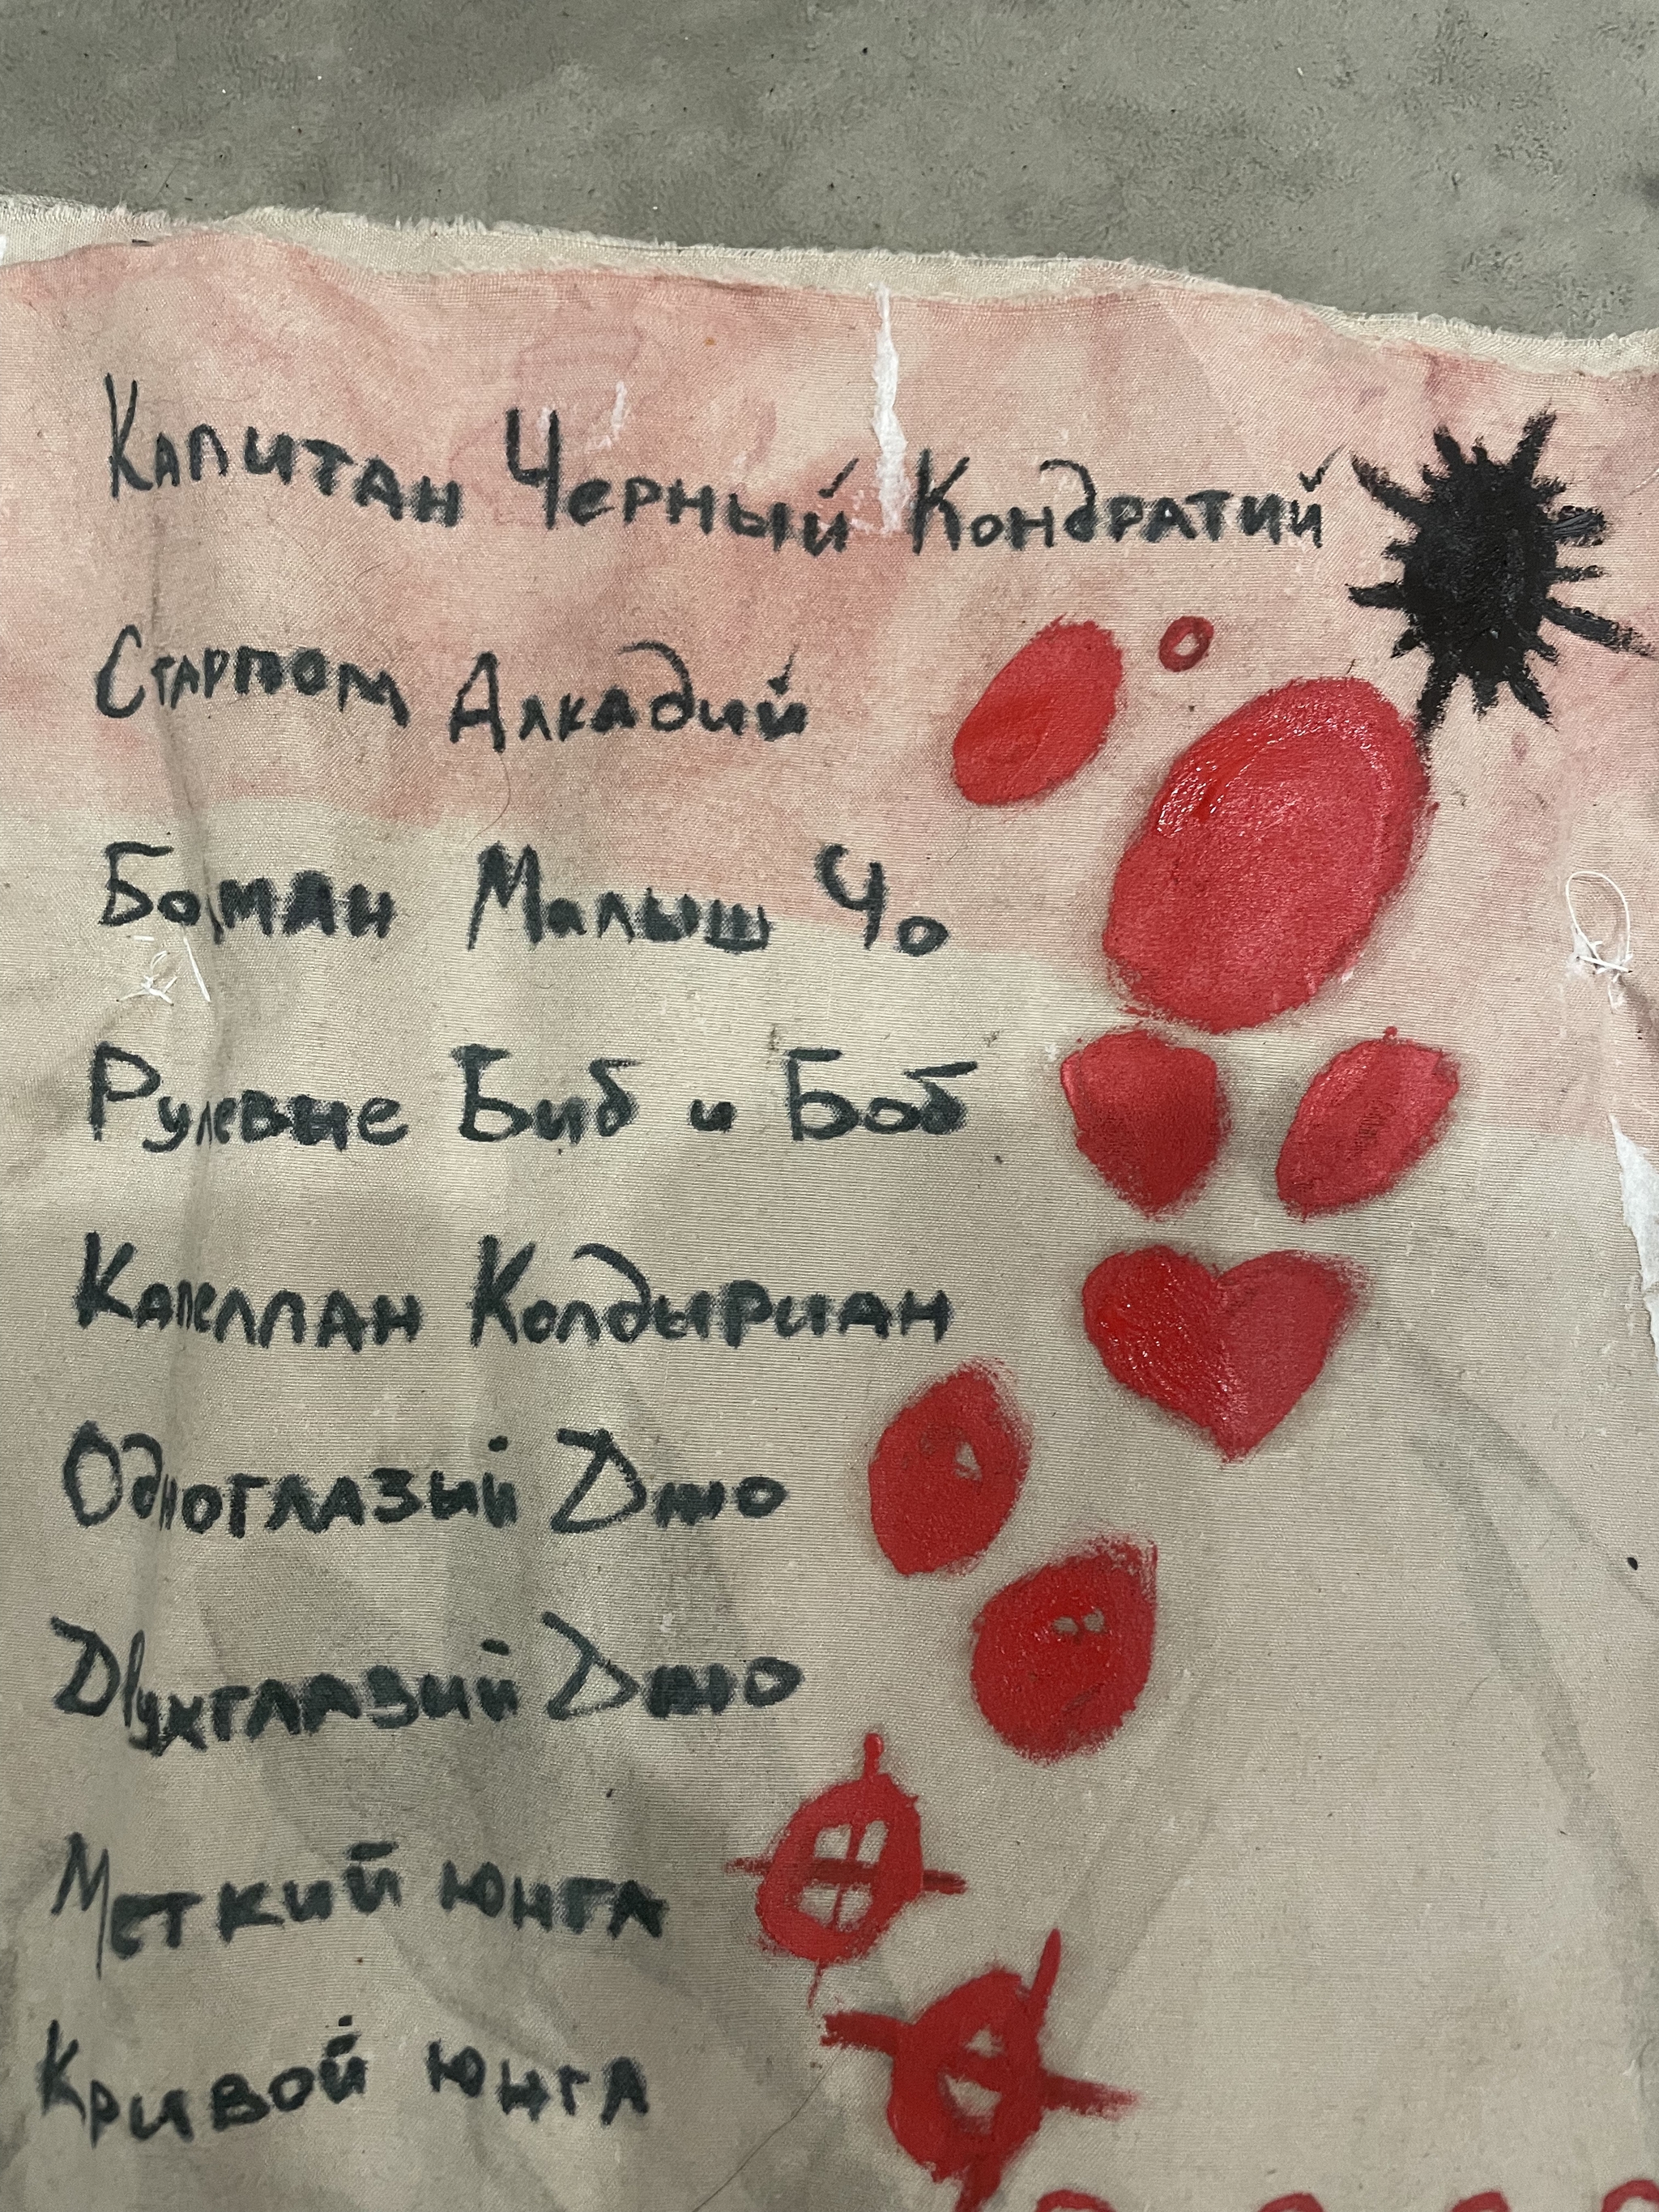 Капитан Черный Кондратий
Старпом Алкадий
Боцман Малыш Чо
Рулевые Биб и Боб
Капеллан Колдыриан
Одноглазый Джо
Двухглазий Джо
Меткий юнга
Кривой юнга